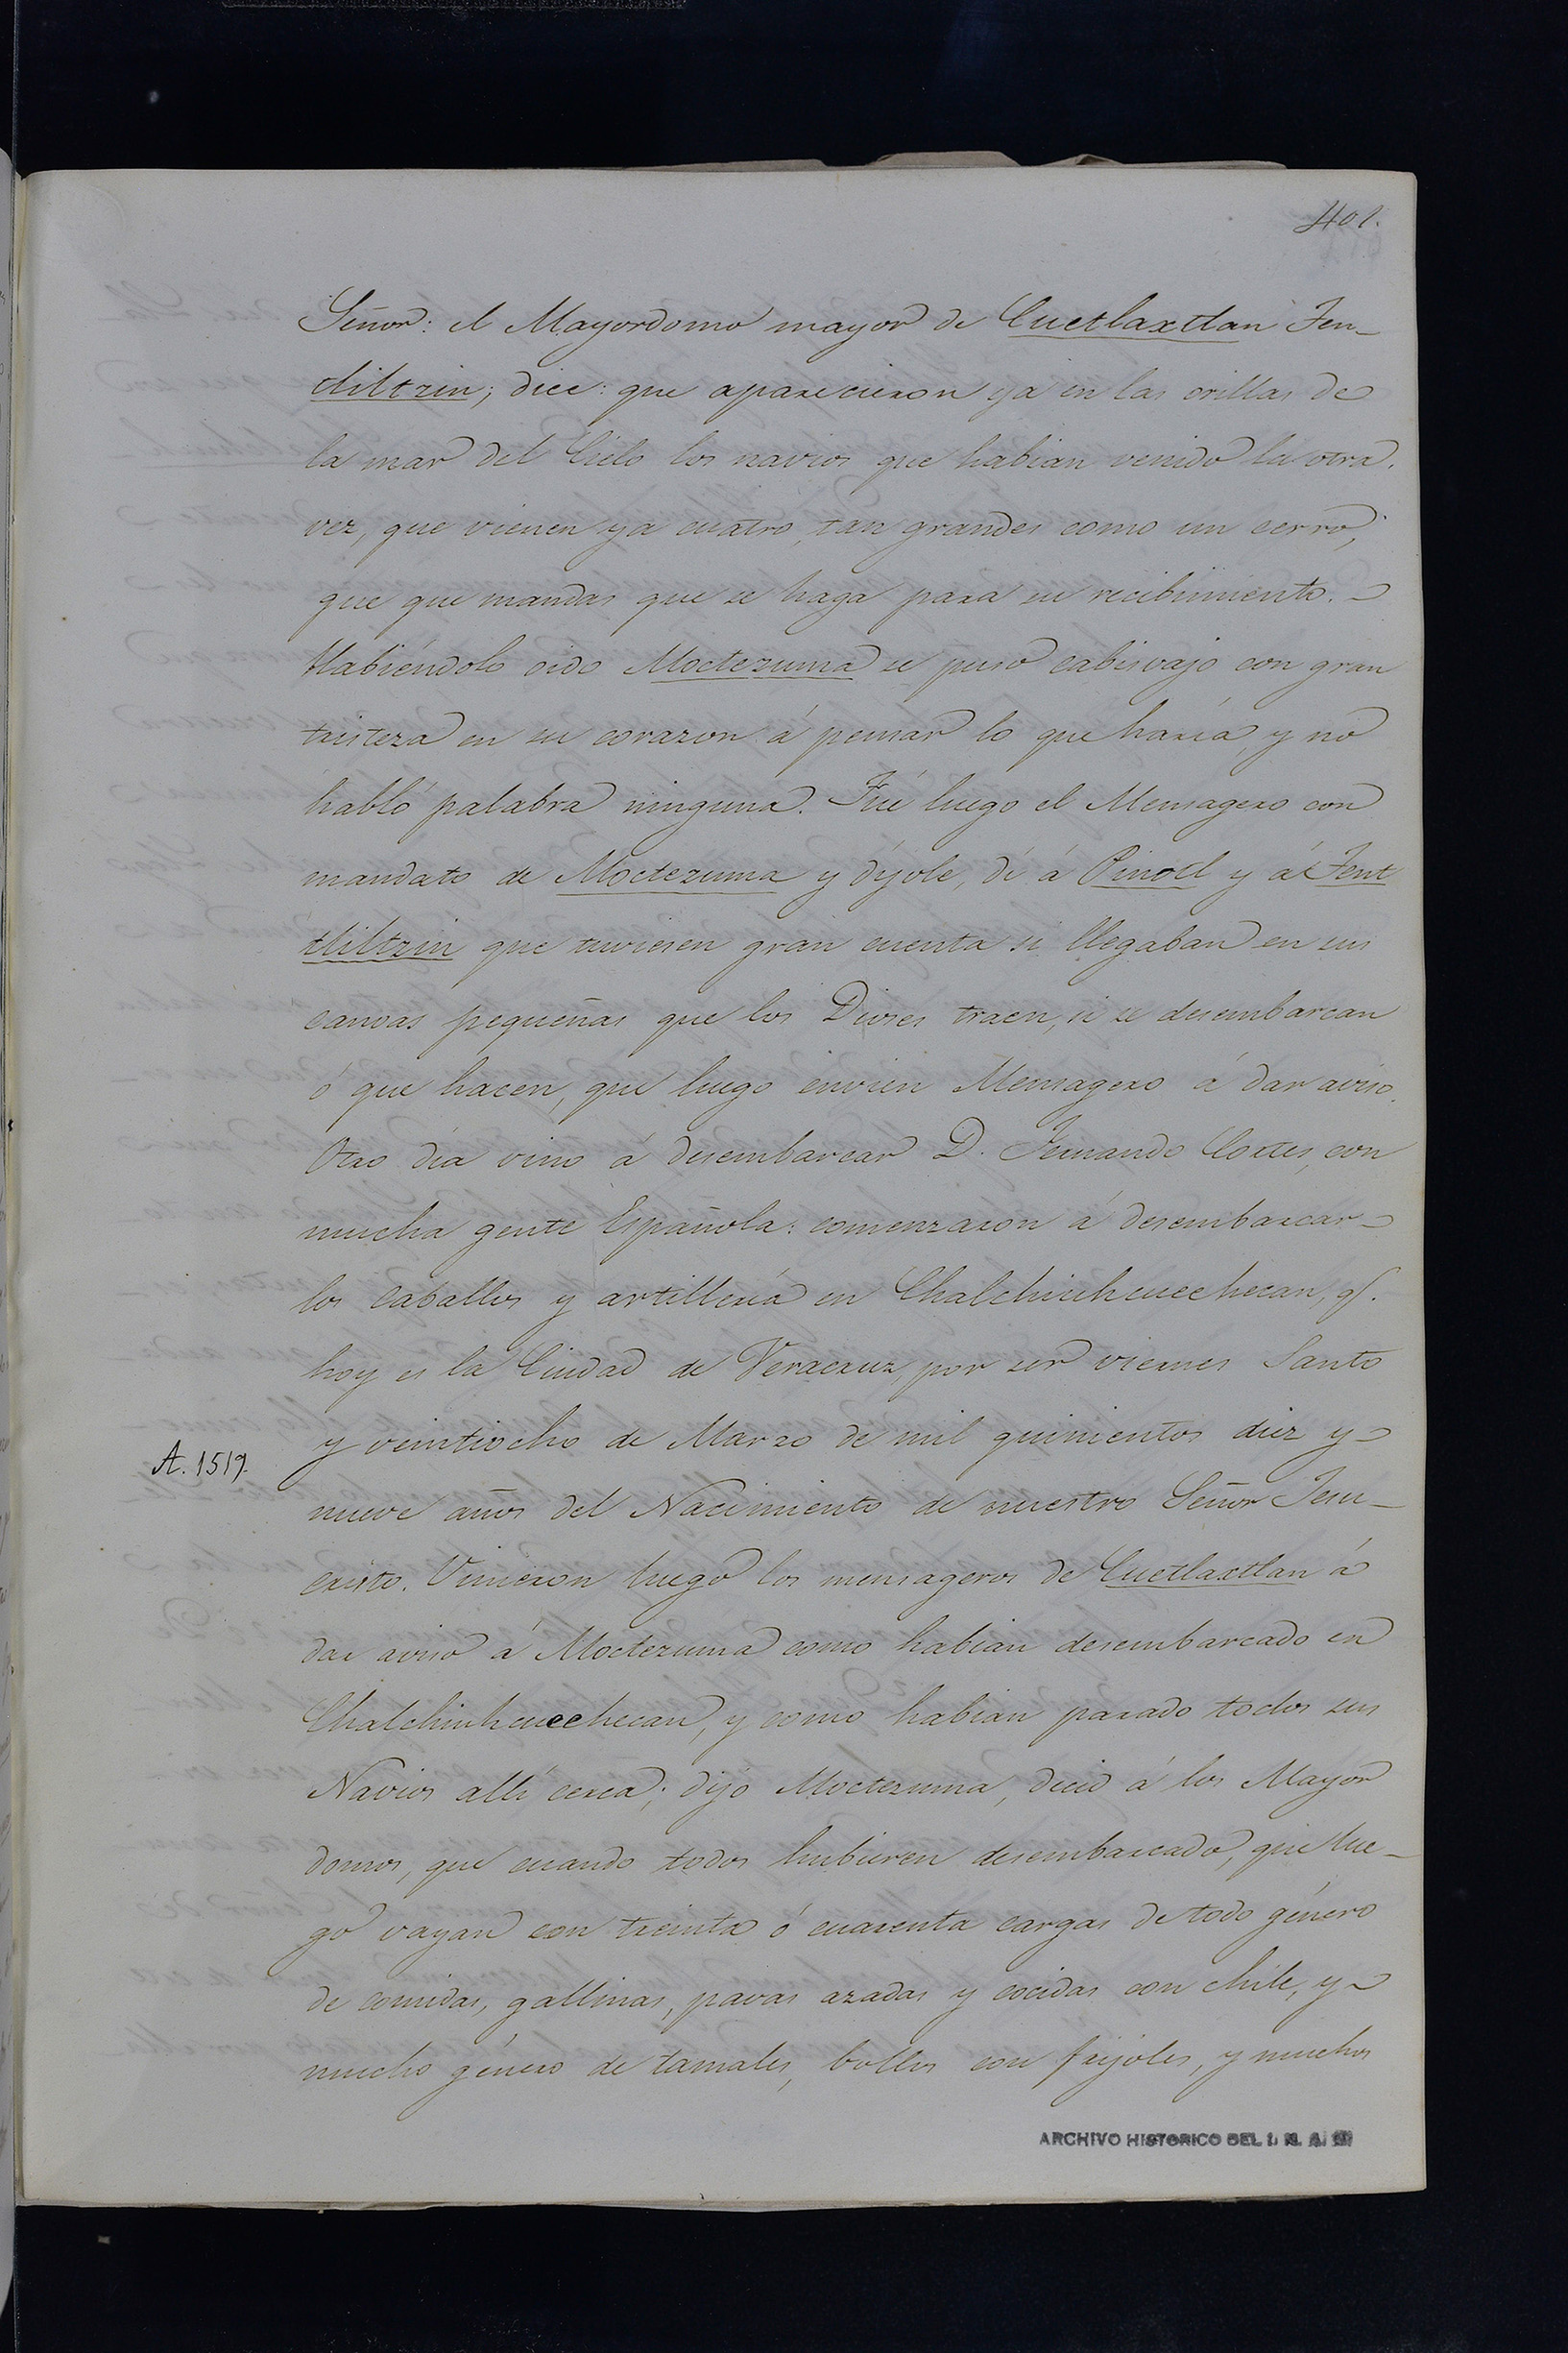 401.
Señor: el Mayordomo mayor de Cuetlaxtlan Ten-
tliltzin; dice: que aparecieron ya en las orillas de
la mar del Cielo los navios que habian venido la otra.
vez, que vienen ya cuatro, tan grandes como un cerro;
que que mandas que se haga para su recibimiento.
Habiéndolo oido Moctezuma se puso cabisvajo con gran
tristeza en su corazon á pensar lo que haría, y no
habló palabra ninguna. Fué luego el Mensagero con
mandato de Moctezuma y díjole, dí á Pinotl y á Tent
tliltzin que tuviesen gran cuenta si llegaban en sus
canoas pequeñas que los Dioses traen, si se desembarcan
ó que hacen, que luego envien Mensagero á dar aviso.
Otro dia vino á desembarcar D. Fernando Cortes, con
mucha gente Española: comenzaron á desembarcar
los caballos y artillería en Chalchiuhcuechecan, q.
hoy es la Ciudad de Veracruz, por ser viernes Santo
y veintiocho de Marzo de mil quinientos diez y
A. 1519.
nueve años del Nacimiento de nuestro Señor Jesu-
cristo. Vinieron luego los mensageros de Cuetlaxtlan á
dar aviso á Moctezuma como habian desembarcado en
Chalchiuhcuechecan, y como habian parado todos sus
Navios allí cerca; dijo Moctezuma, decid á los Mayor
domos, que cuando todos hubieren desembarcado, que lue-
go vayan con treinta ó cuarenta cargas de todo género
de comidas, gallinas, pavas azadas y cocidas con chile, y
mucho género de tamales, bollos con frijoles, y muchos
ARCHIVO HISTORICO DEL I. N. A. H.